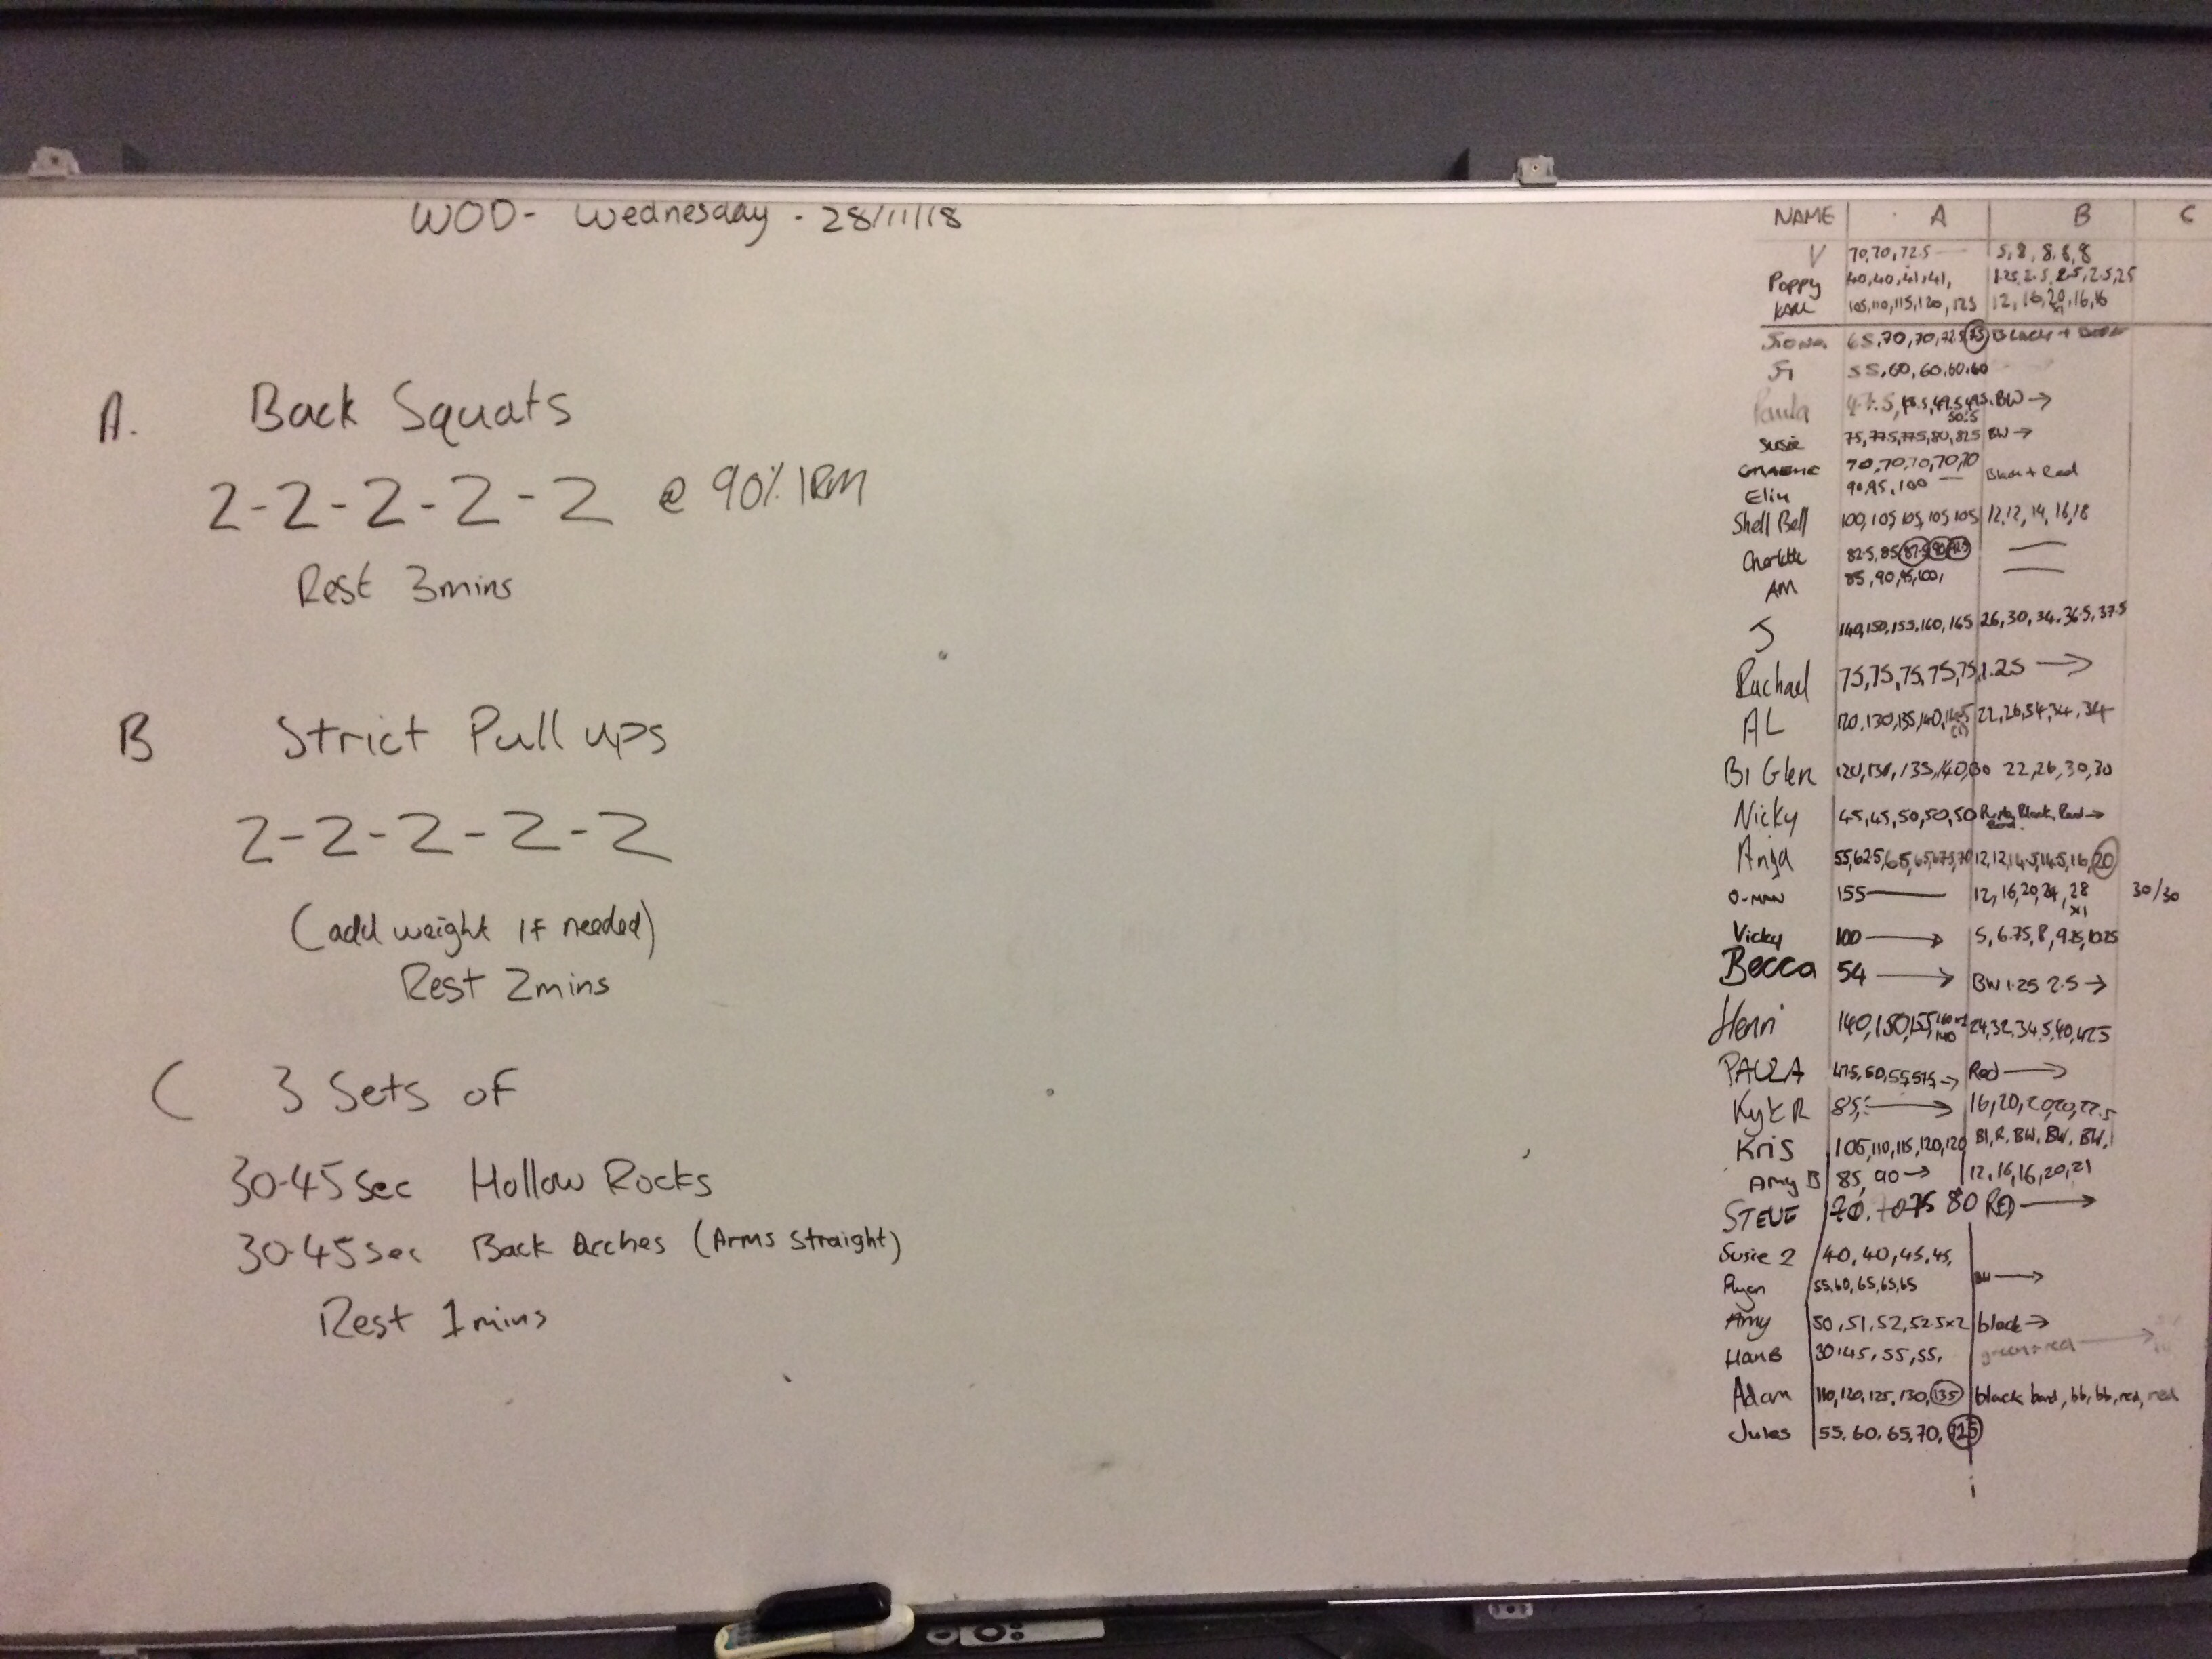 WOD- Wednesday - 28/11/18
A. Back Squats
2-2-2-2-2 @ 90% 1RM
Rest 3mins
B Strict Pull ups
2-2-2-2-2
(add weight if needed)
Rest 2mins
C 3 Sets of
30-45sec Hollow Rocks
30-45sec Back Arches (Arms Straight)
Rest 1mins
NAME A B C
V 70,70,72.5 5,8,8,8,8
Poppy 40,40,41,41, 1.25,2.5,2.5,2.5,2.5
KARL 105,110,115,120,125 12,16,20,16,16
65,70,70,72.5,75 Black +
55,60,60,60,60
Paula 47.5, 49.5 50.5 BW →
Susie 75,77.5,77.5,80,82.5 BW →
GRAEME 70,70,70,70,70 Black + Red
Elin 90,95,100 —
Shell Bell 100,105,105,105,105 12,12,14,16,18
Charlotte 82.5,85,87.5,90,92.5 —
AM 85,90,95,100, —
J 140,150,155,160,165 26,30,34,36.5,37.5
Rachael 75,75,75,75,75 1.25 →
AL 120,130,135,140, 22,26,34,34,34
Bi Glen 120,130,135,140, 22,26,30,30
Nicky 45,45,50,50,50 Black, Red →
Anja 55,62.5,65,65,67.5,70 12,12,14.5,14.5,16,20
O-MAN 155 — 12,16,20,24,28 x1 30/30
Vicky 100 → 5,6.75,8,9.25,10.25
Becca 54 → BW 1.25 2.5 →
Henri 140,150,155, 140 24,32,34.5,40,42.5
PAULA 47.5,50,55,57.5 → Red →
Kyle R 85, → 16,20,20,20,22.5
Kris 105,110,115,120,120 Bl, R, BW, BW, BW,
Amy B 85, 90 → 12,16,16,20,21
STEVE 70. 75 80 RED →
Susie 2 40,40,45,45,
Ryan 55,60,65,65,65 BW →
Amy 50,51,52,52.5x2 black →
Han B 30,45,55,55, green+red →
Adam 110,120,125,130,135 black band, bb, bb, red, red
Jules 55,60,65,70,72.5